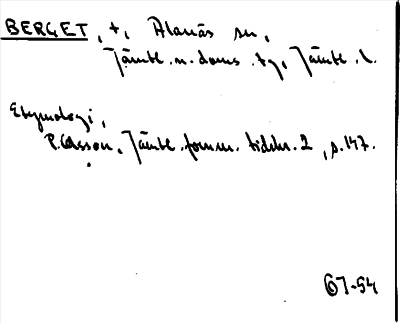 BERGET, t, Alanäs sn,
Jämtl. n. doms. tg, Jämtl. l.
Etymologi,
P. Olsson, Jämtl. fornm. tidskr. 2, s. 147.
67-54